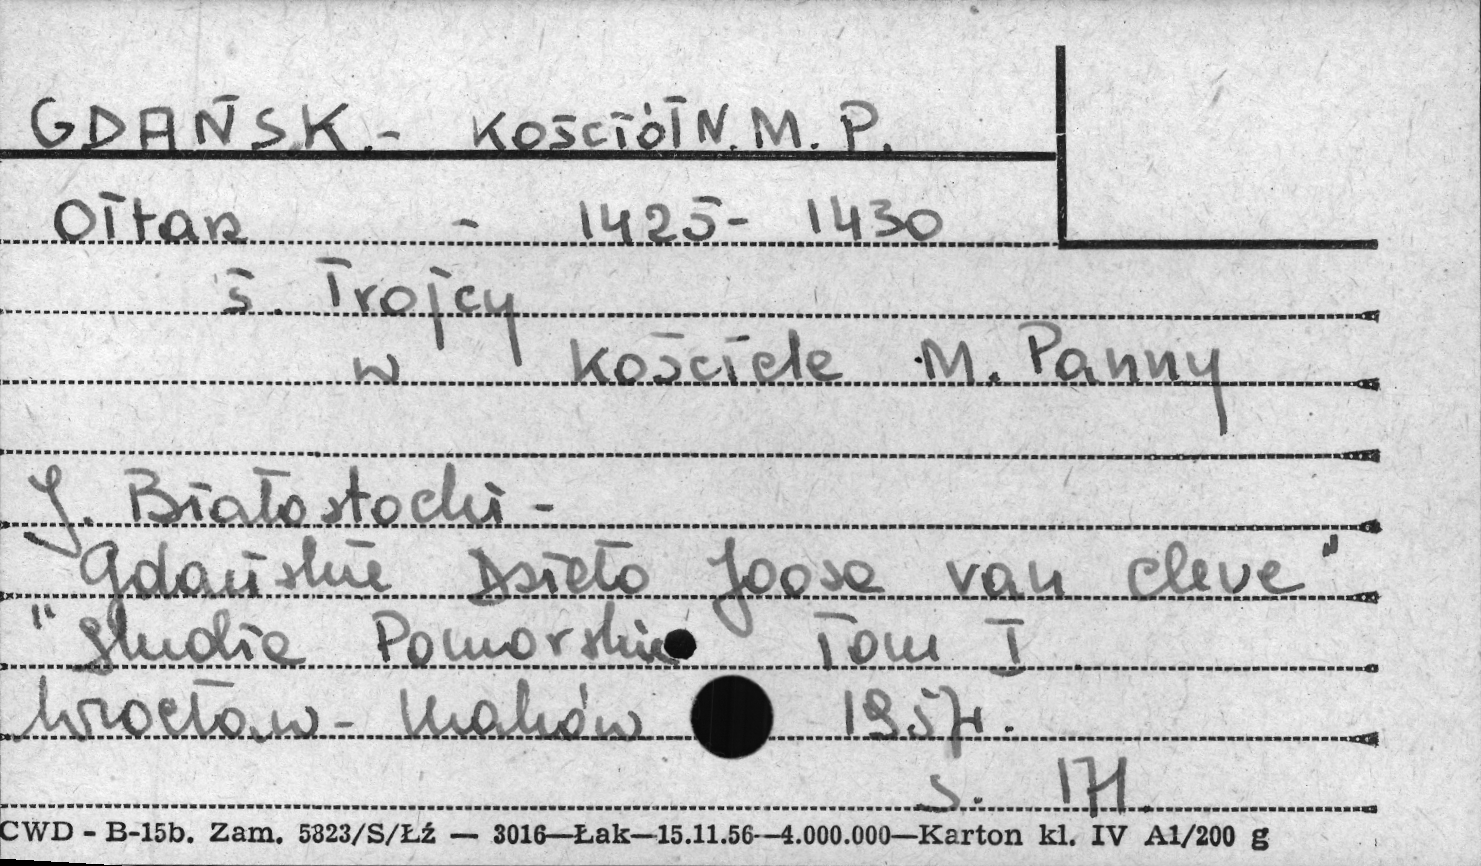 GDAŃSK. - KOŚCIÓŁ N. M. P.
Ołtarz - 1425 - 1430
ś. Trojcy
w Kościele M. Panny
J. Białostocki -
"Gdańskie Dzieło Joosa van Cleve"
"Studia Pomorskie Tom I
Wrocław - Kraków 1957.
s. 171
CWD - B-15b. Zam. 5823/S/Łź — 3016—Łak—15.11.56—4.000.000—Karton kl. IV A1/200 g